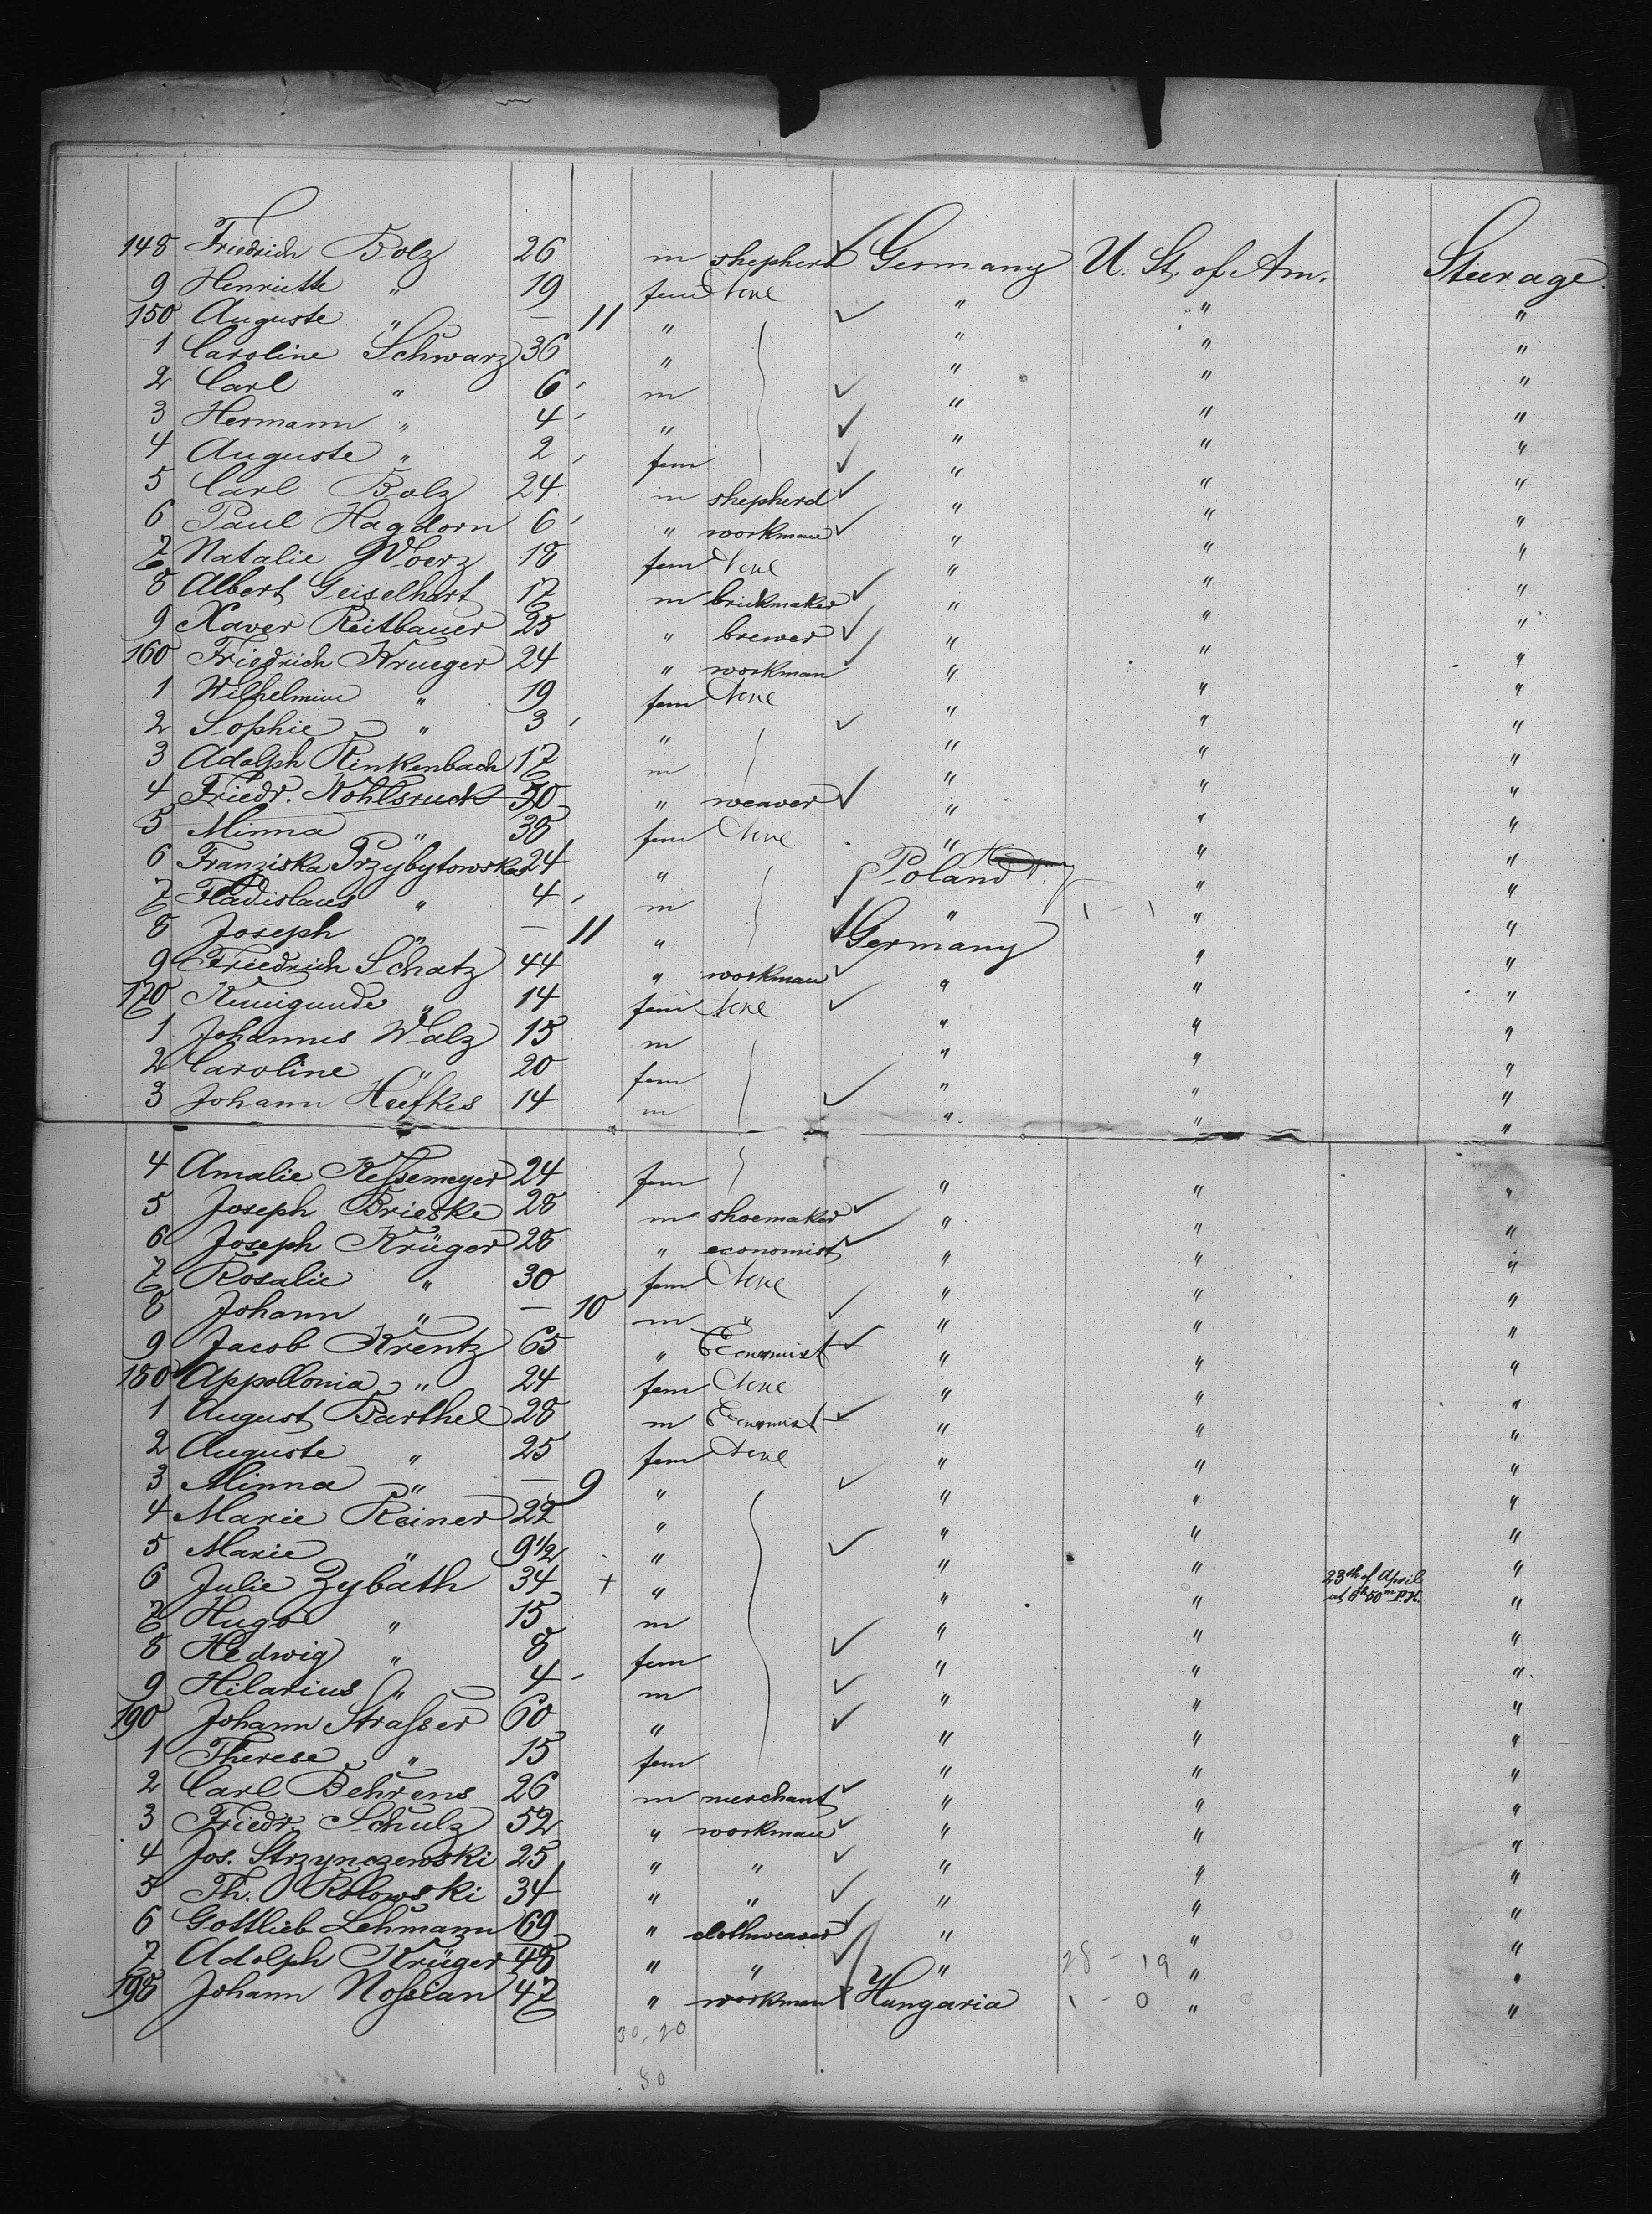 148 Friedrich Bolz 26 m shepherd Germany U. St. of Am. Steerage.
9 Henriette " 19 fem None " " "
150 Auguste " — 11 " " " "
1 Caroline Schwarz 36 " " " "
2 Carl " 6 m " " "
3 Hermann " 4 " " " "
4 Auguste " 2 fem " " "
5 Carl Bolz 24 m shepherd " " "
6 Paul Hagdorn 6 " workman " " "
7 Natalie Woerz 18 fem None " " "
8 Albert Geiselhart 17 m brickmaker " " "
9 Xaver Reitbauer 25 " brewer " " "
160 Friedrich Krueger 24 " workman " " "
1 Wilhelmine " 19 fem None " " "
2 Sophie " 3 " " " "
3 Adolph Rinkenbach 17 m " " "
4 Friedr. Kohlsruck 50 " weaver " " "
5 Minna " 38 fem None " " "
6 Franziska Przybytowska 24 " Poland " "
7 Fladislaus " 4 m " 1 - 1 " "
8 Joseph " — 11 " Germany " "
9 Friedrich Schatz 44 " workman " " "
170 Kunigunde " 14 fem None " " "
1 Johannes Walz 15 m " " "
2 Caroline " 20 fem " " "
3 Johann Heefkes 14 m " " "
4 Amalie Kessemeyer 24 fem " " "
5 Joseph Brieske 28 m shoemaker " " "
6 Joseph Krüger 28 " economist " " "
7 Rosalie " 30 fem None " " "
8 Johann " — 10 m " " " "
9 Jacob Krentz 65 " Economist " " "
180 Appollonia " 24 fem None " " "
1 August Barthel 28 m Economist " " "
2 Auguste " 25 fem None " " "
3 Minna " — 9 " " " "
4 Marie Reiner 22 " " " "
5 Marie " 9 1/2 " " " "
6 Julie Zybath 34 + " " " 23th of April at 6h 50m P.M. "
7 Hugo " 15 m " " "
8 Hedwig " 8 fem " " "
9 Hilarius " 4 m " " "
190 Johann Strasser 60 " " " "
1 Therese " 15 fem " " "
2 Carl Behrens 26 m merchant " " "
3 Friedr. Schulz 52 " workman " " "
4 Jos. Strzynczewski 25 " " " " "
5 Th. Rolowski 34 " " " " "
6 Gottlieb Lehmann 69 " clothweaver " " "
7 Adolph Krüger 48 " " " 28 - 19 " "
198 Johann Nossian 47 " workman Hungaria 1 - 0 " "
30, 20
50